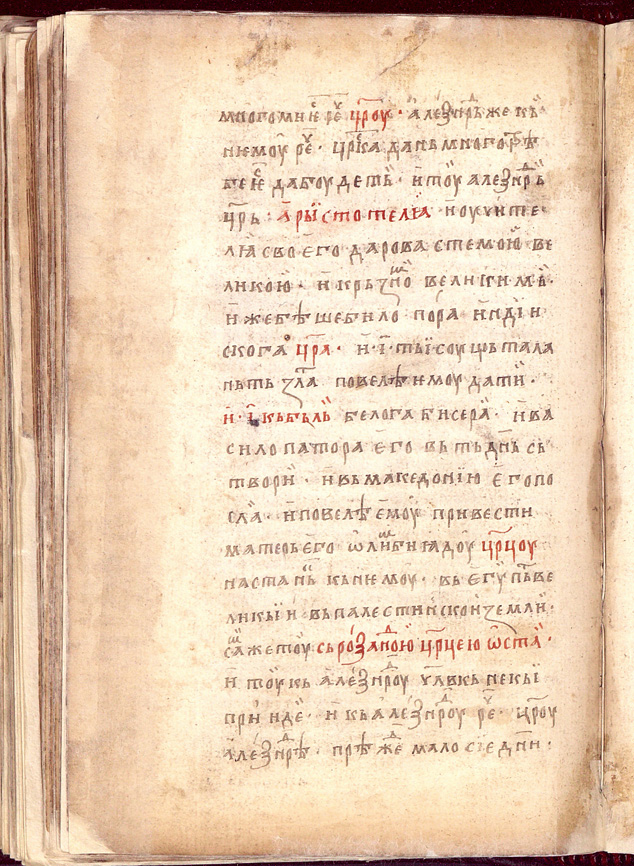 многомни е҇ ре҇ ц҃роу · але́ѯн҃дрь же къ
нѥмоу ре҇ · цр҃ска дань много трѣ
бе ѥ҇ да боудеть · и тоу алеѯн҃дрь
цр҃ь · аристотелꙗ и оучите
лꙗ своѥго дарова стемою ве
ликою · и крьзно великимь ·
иже бѣше било пора инди и
скога цр҃а · и · і҃ · тысоущь тала
нь ть зла҃та повелѣ ѥмоу дати ·
и · і҃ · кьбьль белога бисера · и ва
сило патора ѥго вь ть дн҃ь сь
твори · и вь македонїю ѥго по
сла · и повелѣ ѥмоу привести
матерь ѥго ѡлимбиꙗдоу цр҃цоу
на стань кь нѥмоу · вь егу҃пть ве
ликы и вь палестинскои земли ·
самже тоу сь роѯандою цр҃цею ѡста ·
и тоу кь алеѯн҃дроу чл҃вкь некы
прииде · и кь алеѯн҃дроу ре҇ · цр҃оу
алеѯн҃дрѣ · прѣжде мало сїе дни ·